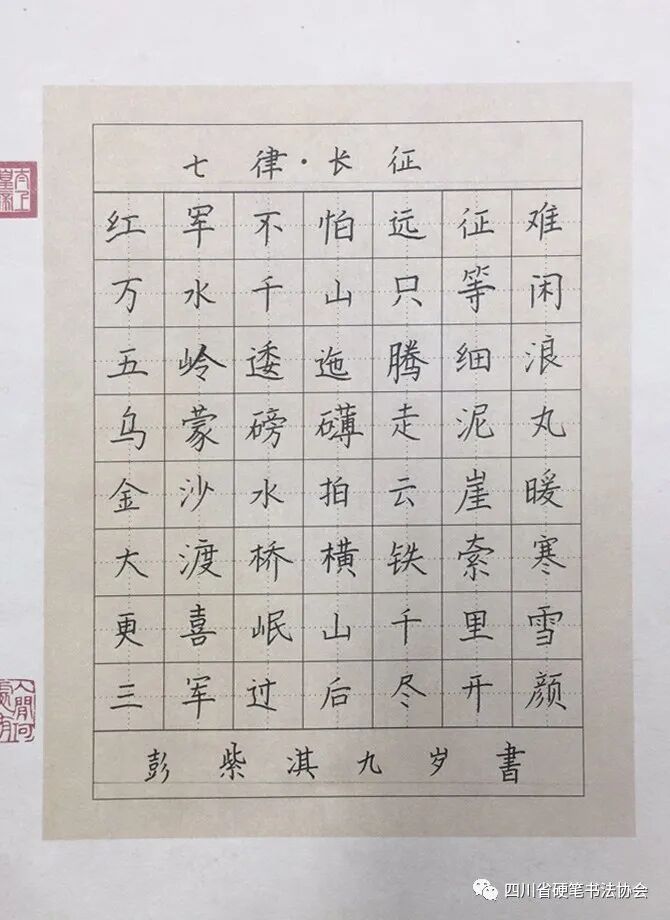 七律·长征
红军不怕远征难
万水千山只等闲
五岭逶迤腾细浪
乌蒙磅礴走泥丸
金沙水拍云崖暖
大渡桥横铁索寒
更喜岷山千里雪
三军过后尽开颜
彭紫淇九岁書
四川省硬笔书法协会